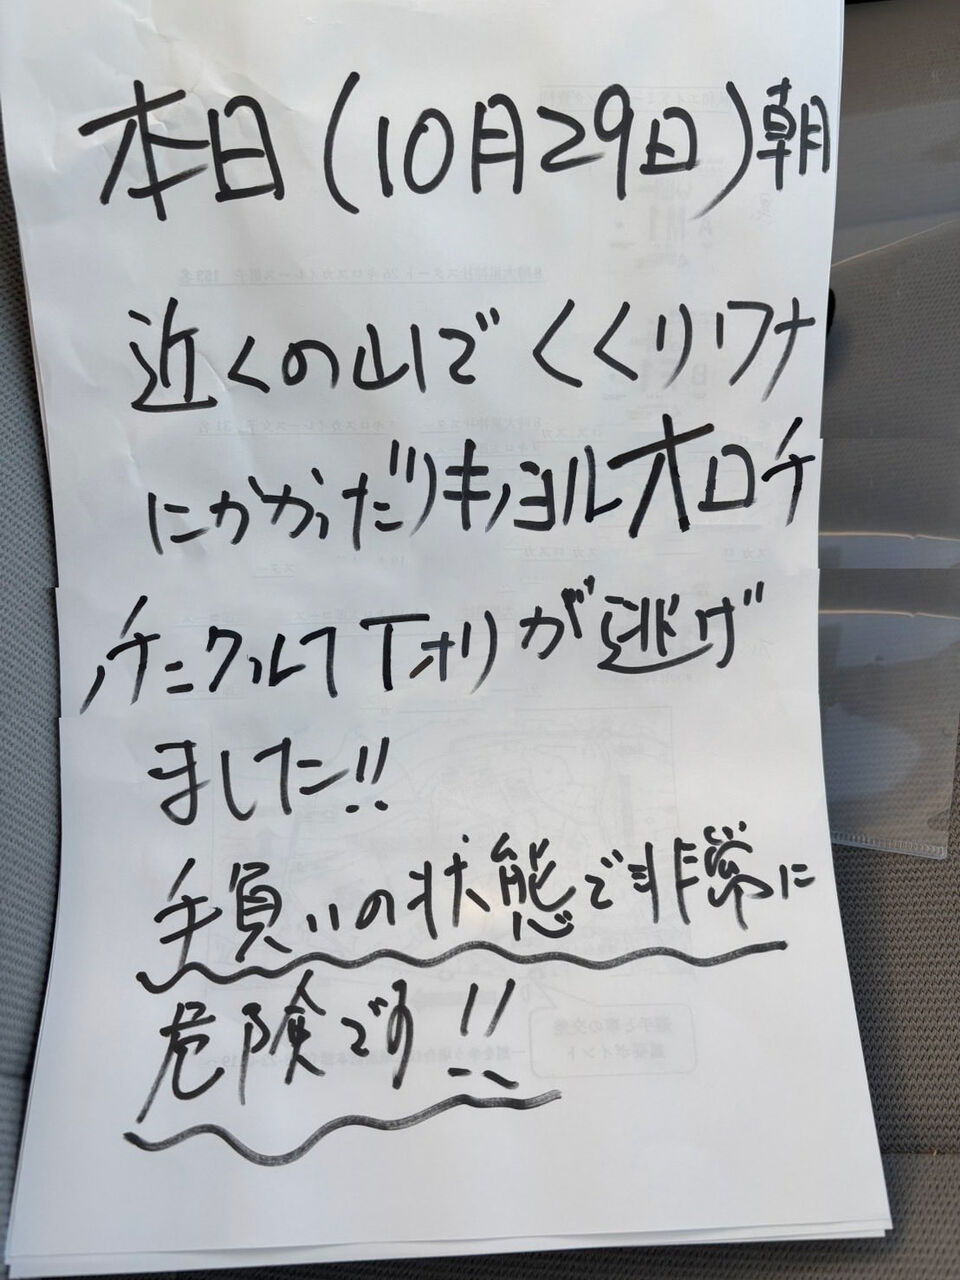 本日(10月29日)朝
近くの山でくくりワナ
にかかったツキノヨルオロチ
ノチニクルフテオリが逃げ
ました!!
手負いの状態で非常に
危険です!!